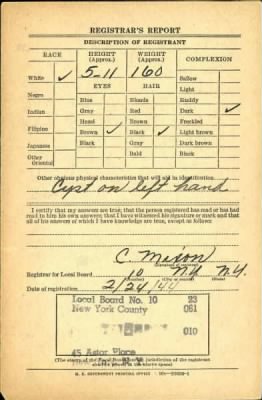 REGISTRAR'S REPORT
DESCRIPTION OF REGISTRANT
RACE HEIGHT (Approx.) WEIGHT (Approx.) COMPLEXION
White ✓ 5-11 160 Sallow
EYES HAIR Light
Negro Blue Blonde Ruddy
Indian Gray Red Dark ✓
Hazel Brown Freckled
Filipino Brown ✓ Black ✓ Light brown
Japanese Black Gray Dark brown
Other Oriental Bald Black
Other obvious physical characteristics that will aid in identification
Cyst on left hand
I certify that my answers are true; that the person registered has read or has had
read to him his own answers; that I have witnessed his signature or mark and that
all of his answers of which I have knowledge are true, except as follows:
C Mixon
(Signature of registrar)
Registrar for Local Board 10 N.Y. N.Y.
Date of registration 2/24/44
Local Board No. 10 23
New York County 061
010
45 Astor Place
(The stamp of the Local Board jurisdiction of the registrant
U. S. GOVERNMENT PRINTING OFFICE